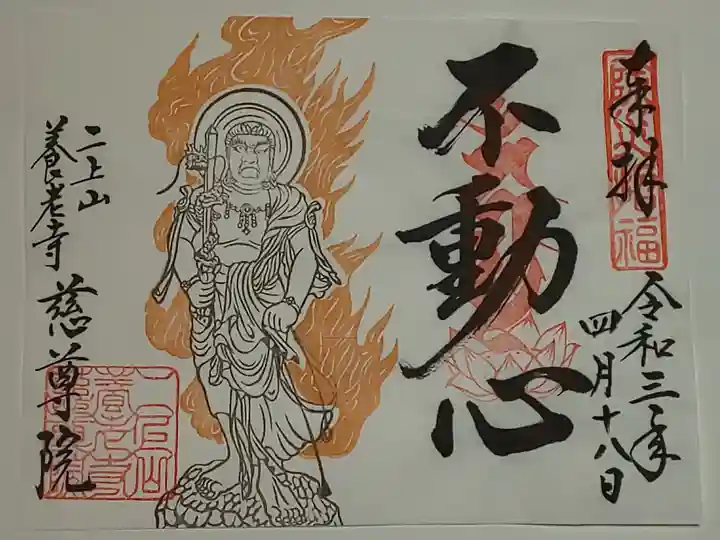 来拝
令和三年
四月十八日
不動心
二上山
養老寺
慈尊院